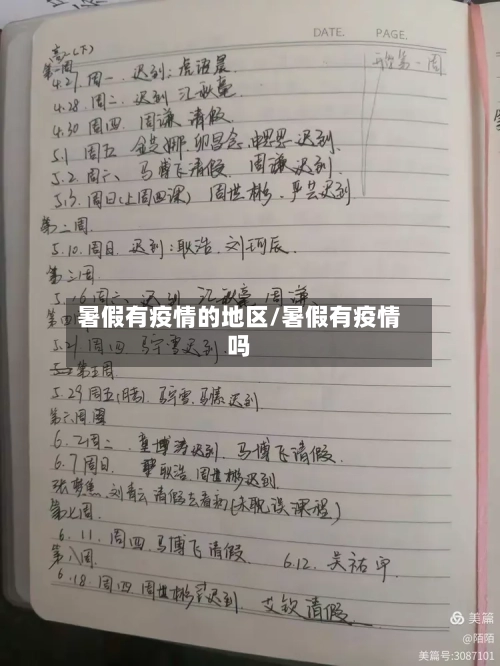 DATE. PAGE.
(高二下)
第一周
4.27. 周一. 迟到: 虎语晨
4.28. 周二. 迟到 江秋毫
4.30 周四. 周谦 请假.
5.1 周五 迟到.
5.2 周六 马博飞请假. 周谦迟到.
5.3. 周日(上周四课) 周世彬. 严芸迟到
第二周.
5.10. 周日. 迟到: 耿浩. 刘珂辰.
第三周.
5.16 周六. 迟到 江秋毫. 周谦.
暑假有疫情的地区/暑假有疫情吗
5.21 周四 马宇雪迟到
第五周
5.29 周五 马宇雪. 迟到
第六周
6.2周二. 迟到. 马博飞请假.
6.7 周日. 耿浩. 周世彬迟到.
刘青云 请假去看病(未耽误课程)
第七周.
6.11. 周四. 马博飞 请假. 6.12. 吴祐
第八周.
6.18. 周四 周世彬迟到. 艾钦请假
美篇
@陌陌
美篇号:3087101